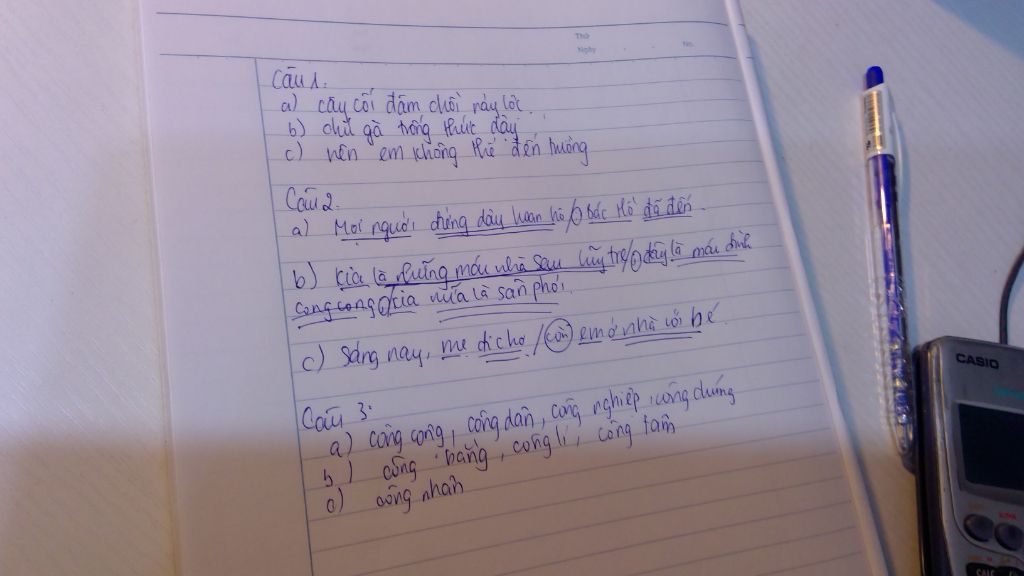 Thứ
Ngày No.
Câu 1.
a) cây cối đâm chồi nảy lộc.
b) chú gà trống thức dậy
c) nên em không thể đến trường
Câu 2.
a) Mọi người đứng dậy hoan hô/, Bác Hồ đã đến.
b) Kia là những mái nhà sau luỹ tre/, đây là mái đình
cong cong,/kia nữa là sân phơi.
c) Sáng nay, mẹ đi chợ / còn em ở nhà với bé.
Câu 3:
a) công cộng, công dân, công nghiệp, công chúng
b) công bằng, công lí, công tâm
c) công nhân
CASIO